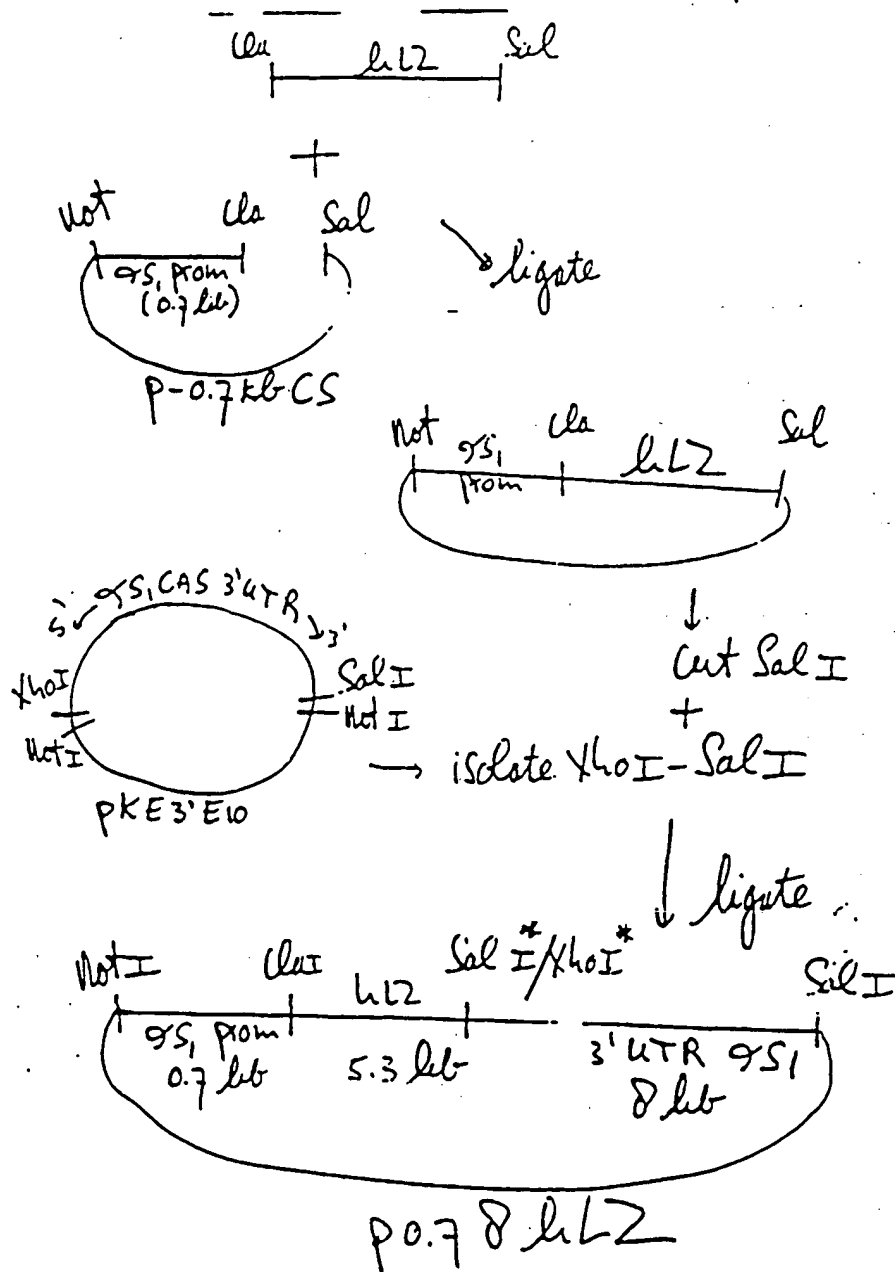 Cla hLZ Sal
+
Not Cla Sal
αS₁ prom
(0.7 kb)
ligate
p-0.7kb CS
Not αS₁ prom Cla hLZ Sal
5' αS₁ CAS 3'UTR 3'
XhoI
NotI
Sal I
Not I
pKE3'E10
Cut Sal I
+
isolate XhoI-Sal I
ligate
Not I ClaI hLZ Sal I*/XhoI* Sal I
αS₁ prom
0.7 kb
5.3 kb
3' UTR αS₁
8 kb
p0.7 8 hLZ